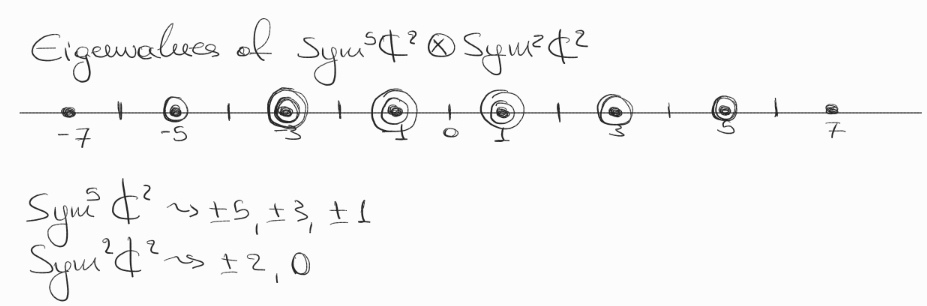 Eigenvalues of Sym⁵ℂ² ⊗ Sym²ℂ²
-7 -5 -3 -1 0 1 3 5 7
Sym⁵ ℂ² ⇝ ±5, ±3, ±1
Sym²ℂ² ⇝ ±2, 0